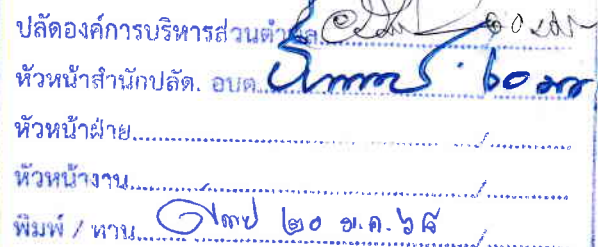 ปลัดองค์การบริหารส่วนตำบล
หัวหน้าสำนักปลัด. อบต.
หัวหน้าฝ่าย............/............
หัวหน้างาน............/............
พิมพ์ / ทาน ๒๐ ม.ค. ๖๘